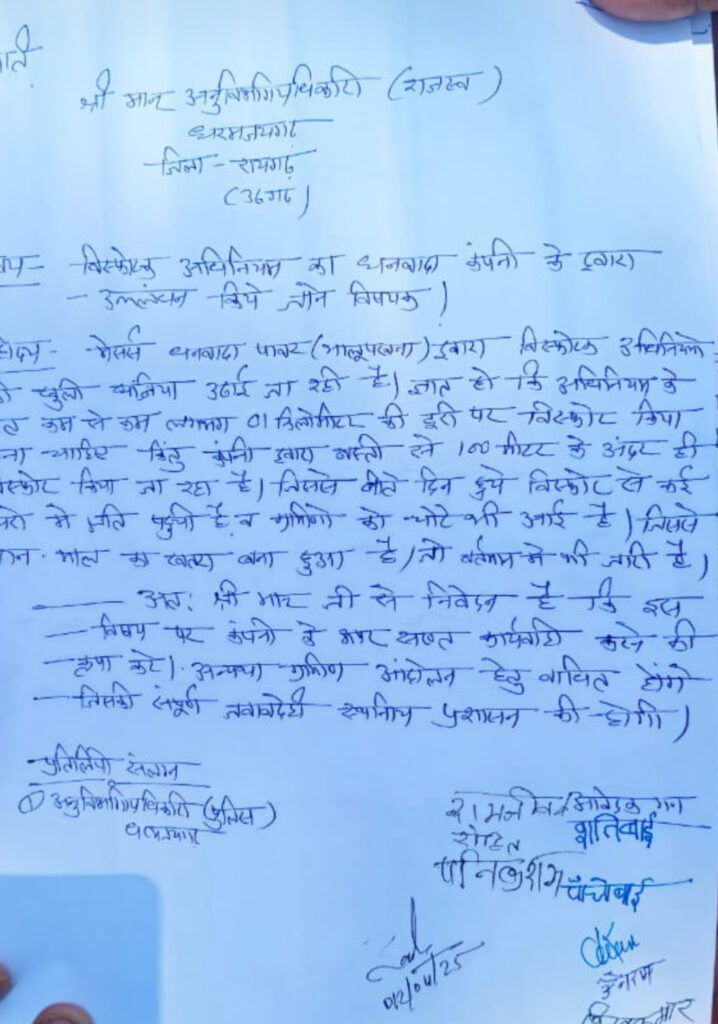 श्री मान् अनुविभागिय अधिकारी (राजस्व)
धरमजयगढ़
जिला - रायगढ़
(36गढ़)
विस्फोटक अधिनियम का धनवादा कंपनी के द्वारा
उल्लंघन किये जाने विषयक।
मेसर्स धनवादा पावर (भालूपखना) द्वारा विस्फोटक अधिनियमो
खुली धज्जिया उडाई जा रही है। ज्ञात हो कि अधिनियम के
कम से कम लगभग 01 किलोमीटर की दूरी पर विस्फोट किया
चाहिए किंतु कंपनी द्वारा बस्ती से 100 मीटर के अंदर ही
किया जा रहा है। जिससे बीते दिन हुये विस्फोट से कई
मे क्षति पहुची है व ग्रामिणो को चोटे भी आई है। जिससे
माल का खतरा बना हुआ है। जो वर्तमान मे भी जारी है।
अतः श्री मान जी से निवेदन है कि इस
विषय पर कंपनी के ऊपर सख्त कार्यवाही करने की
कृपा करे। अन्यथा ग्रामिण आंदोलन हेतु बाधित होंगे
जिसकी संपूर्ण जवाबदेही स्थानिय प्रशासन की होगी।
प्रतिलिपी संलग्न
① अनुविभागिय अधिकारी (पुलिस)
आवेदक गन
रोहित शांतिबाई
पाँचोबाई
02/04/25